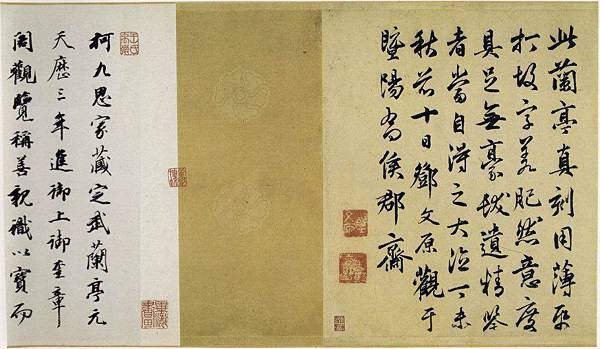 此蘭亭真刻用薄帋
打故字差肥然意度
具足無豪髮遺精鑒
者當自得之大德丁未
秋前十日鄧文原觀于
陽侯郡齋
柯九思家藏定武蘭亭元
天歷三年進御上御奎章
閣觀覽稱善親識以寶而